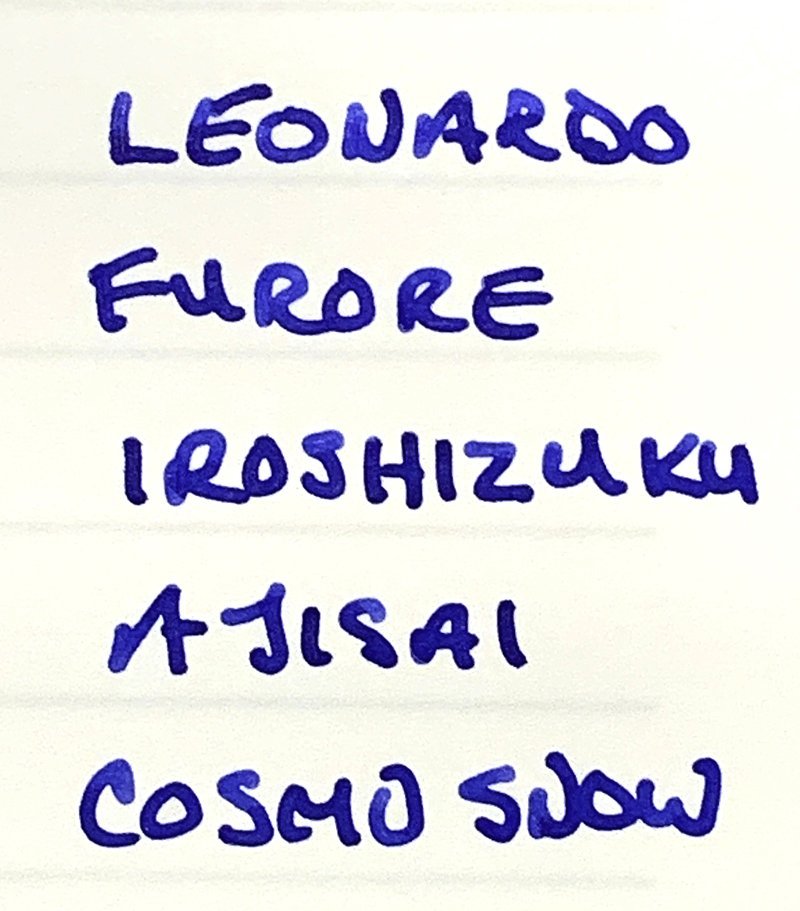 LEONARDO
FURORE
IROSHIZUKU
AJISAI
COSMO SNOW